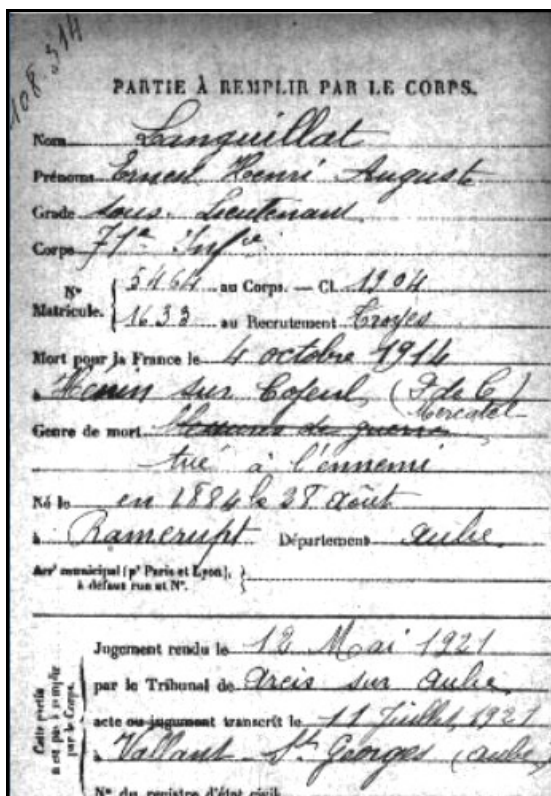 108.314
PARTIE À REMPLIR PAR LE CORPS.
Nom Languillat
Prénoms Ernest Henri Auguste
Grade sous-Lieutenant
Corps 71e Infie
No Matricule. { 5464 au Corps. — Cl. 1904
1633 au Recrutement Troyes
Mort pour la France le 4 octobre 1914
à Hénin sur Cojeul, (P de C)
Mercatel
Genre de mort Blessures de guerre
tué à l'ennemi
Né le en 1884 le 28 Août
à Ramerupt Département Aube.
Arrt municipal (pr Paris et Lyon), à défaut rue et No. }
Cette partie n'est pas à remplir par le Corps. {
Jugement rendu le 12 Mai 1921
par le Tribunal de Arcis sur Aube
acte ou jugement transcrit le 11 Juillet 1921
à Vallant-St Georges (Aube)
No du registre d'état civil